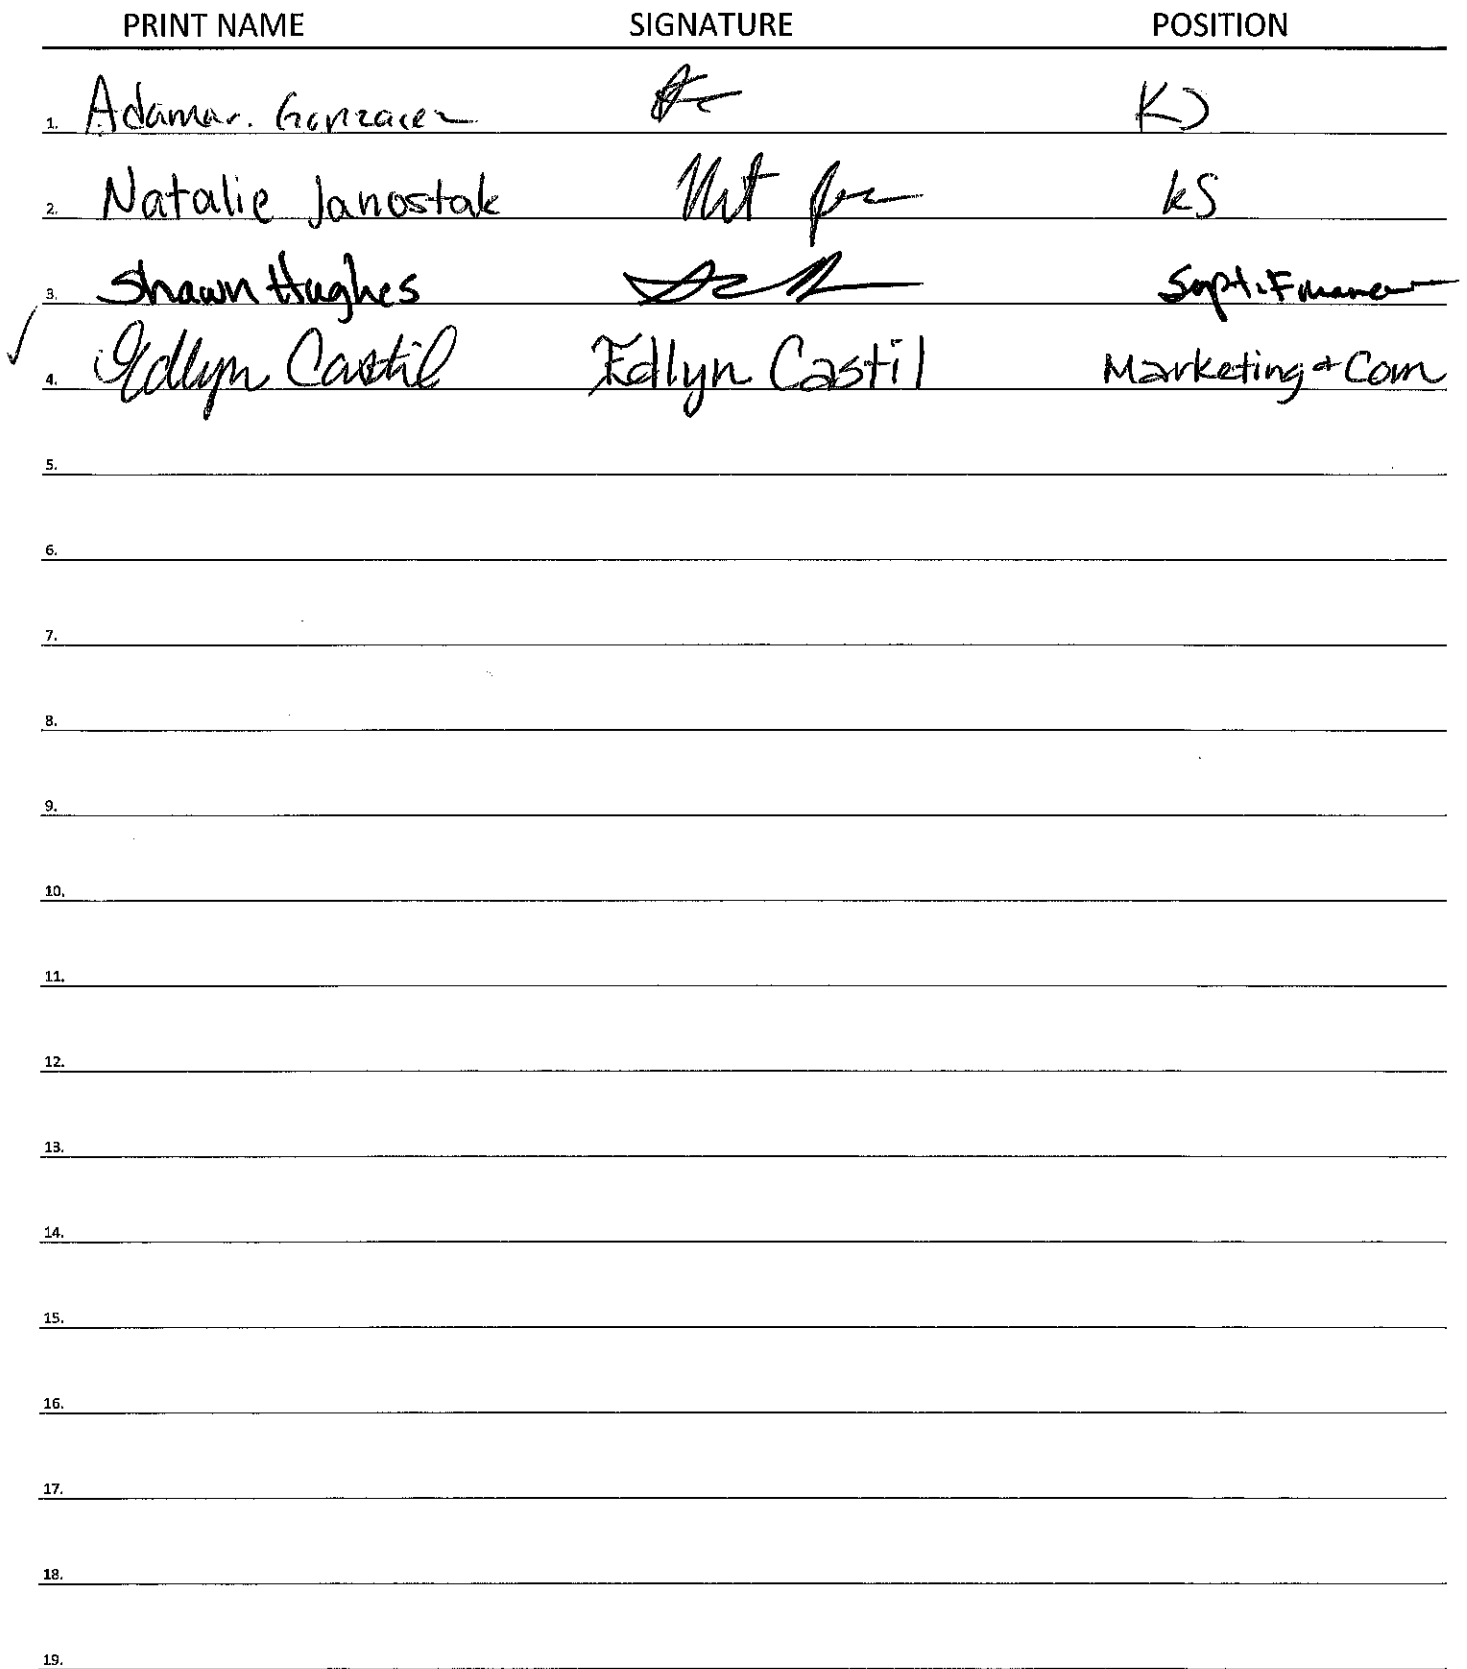 PRINT NAME SIGNATURE POSITION
1. Adamar. Gonzalez
2. Natalie Janostak kS
3. Shawn Hughes
4. Edlyn Castil Edlyn Castil Marketing + Com
5.
6.
7.
8.
9.
10.
11.
12.
13.
14.
15.
16.
17.
18.
19.